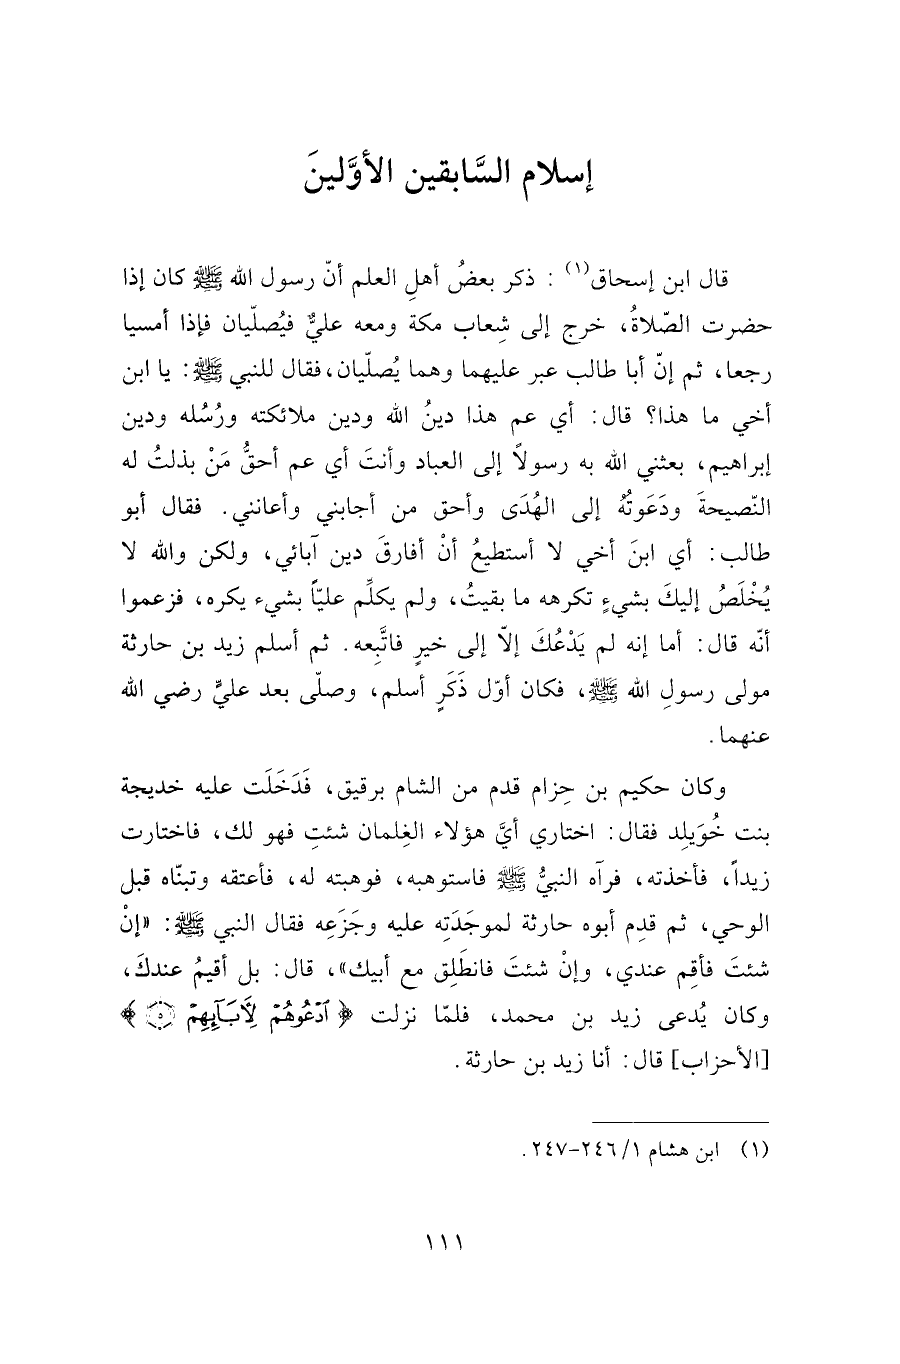 إسلام السَّابقين الأوَّلينَ
قال ابن إسحاق(١) : ذكر بعضُ أهلِ العلم أنّ رسول الله ﷺ كان إذا
حضرت الصّلاةُ، خرج إلى شِعاب مكة ومعه عليٌّ فيُصلّيان فإذا أمسيا
رجعا، ثم إنّ أبا طالب عبر عليهما وهما يُصلّيان، فقال للنبي ﷺ: يا ابن
أخي ما هذا؟ قال: أي عم هذا دينُ الله ودين ملائكته ورُسُله ودين
إبراهيم، بعثني الله به رسولاً إلى العباد وأنتَ أي عم أحقُّ مَنْ بذلتُ له
النّصيحةَ ودَعَوتُهُ إلى الهُدَى وأحق من أجابني وأعانني. فقال أبو
طالب: أي ابنَ أخي لا أستطيعُ أنْ أفارقَ دين آبائي، ولكن والله لا
يُخْلَصُ إليكَ بشيءٍ تكرهه ما بقيتُ، ولم يكلِّم عليّاً بشيء يكره، فزعموا
أنّه قال: أما إنه لم يَدْعُكَ إلاّ إلى خيرٍ فاتَّبِعه. ثم أسلم زيد بن حارثة
مولى رسولِ الله ﷺ، فكان أوّل ذَكَرٍ أسلم، وصلّى بعد عليٍّ رضي الله
عنهما.
وكان حكيم بن حِزام قدم من الشام برقيق، فَدَخَلَت عليه خديجة
بنت خُوَيلِد فقال: اختاري أيَّ هؤلاء الغِلمان شئتِ فهو لك، فاختارت
زيداً، فأخذته، فرآه النبيُّ ﷺ فاستوهبه، فوهبته له، فأعتقه وتبنّاه قبل
الوحي، ثم قدِم أبوه حارثة لموجَدَتِه عليه وجَزَعِه فقال النبي ﷺ: «إنْ
شئتَ فأقِم عندي، وإنْ شئتَ فانطَلِق مع أبيك»، قال: بل أقيمُ عندكَ،
وكان يُدعى زيد بن محمد، فلمّا نزلت ﴿ ٱدۡعُوهُمۡ لِأٓبَآئِهِمۡ ۝٥ ﴾
[الأحزاب] قال: أنا زيد بن حارثة.
(١) ابن هشام ١/ ٢٤٦-٢٤٧.
١١١